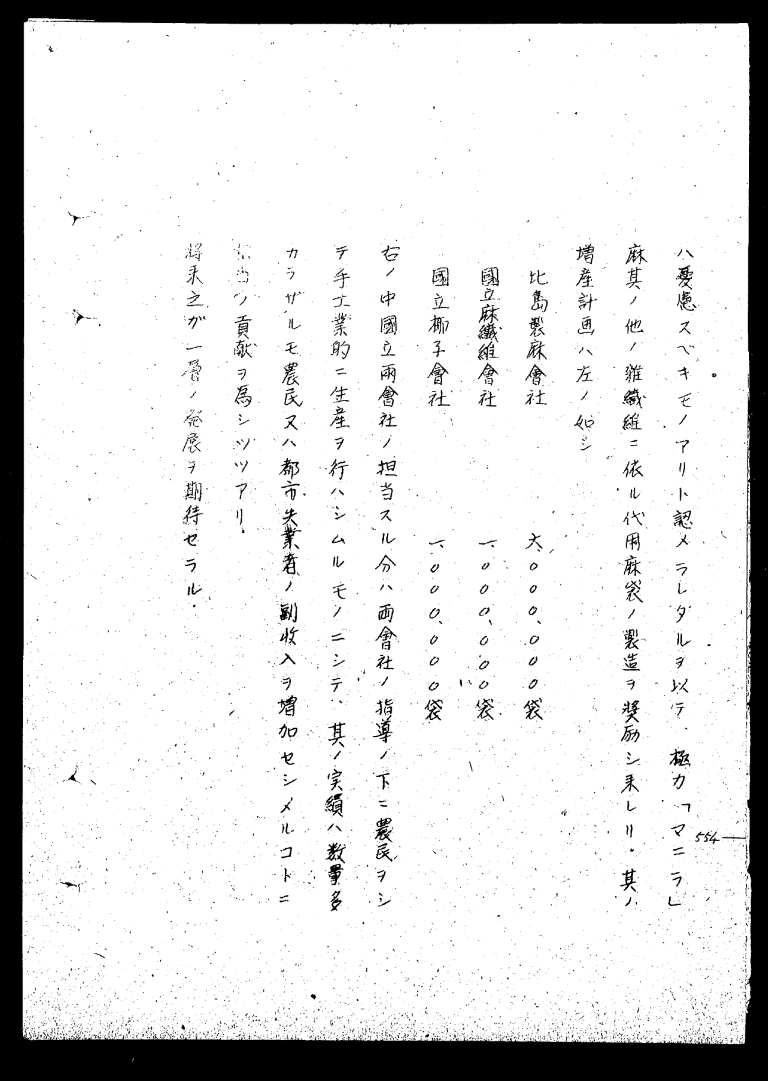 ハ憂慮スベキモノアリト認メラレタルヲ以テ、極力「マニラ」
麻其ノ他ノ雑纖維ニ依ル代用麻袋ノ製造ヲ奨励シ来レリ。其ノ
増産計画ハ左ノ如シ
比島製麻會社 六、〇〇〇、〇〇〇袋
國立麻纖維會社 一、〇〇〇、〇〇〇袋
國立椰子會社 一、〇〇〇、〇〇〇袋
右ノ中國立兩會社ノ担当スル分ハ両會社ノ指導ノ下ニ農民ヲシ
テ手工業的ニ生産ヲ行ハシムルモノニシテ、其ノ実績ハ数量多
カラザルモ農民又ハ都市失業者ノ副収入ヲ増加セシメルコトニ
当ノ貢献ヲ為シツツアリ。
将来之ガ一層ノ発展ヲ期待セラル。
554